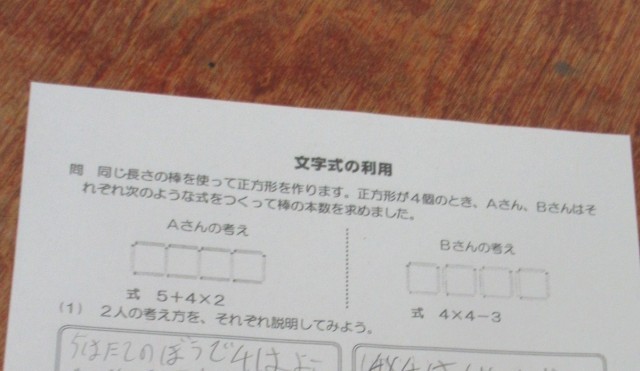 文字式の利用
問 同じ長さの棒を使って正方形を作ります。正方形が4個のとき、Aさん、Bさんはそ
れぞれ次のような式をつくって棒の本数を求めました。
Aさんの考え
Bさんの考え
式 5+4×2
式 4×4-3
(1) 2人の考え方を、それぞれ説明してみよう。
5はたてのぼうで4はよこ